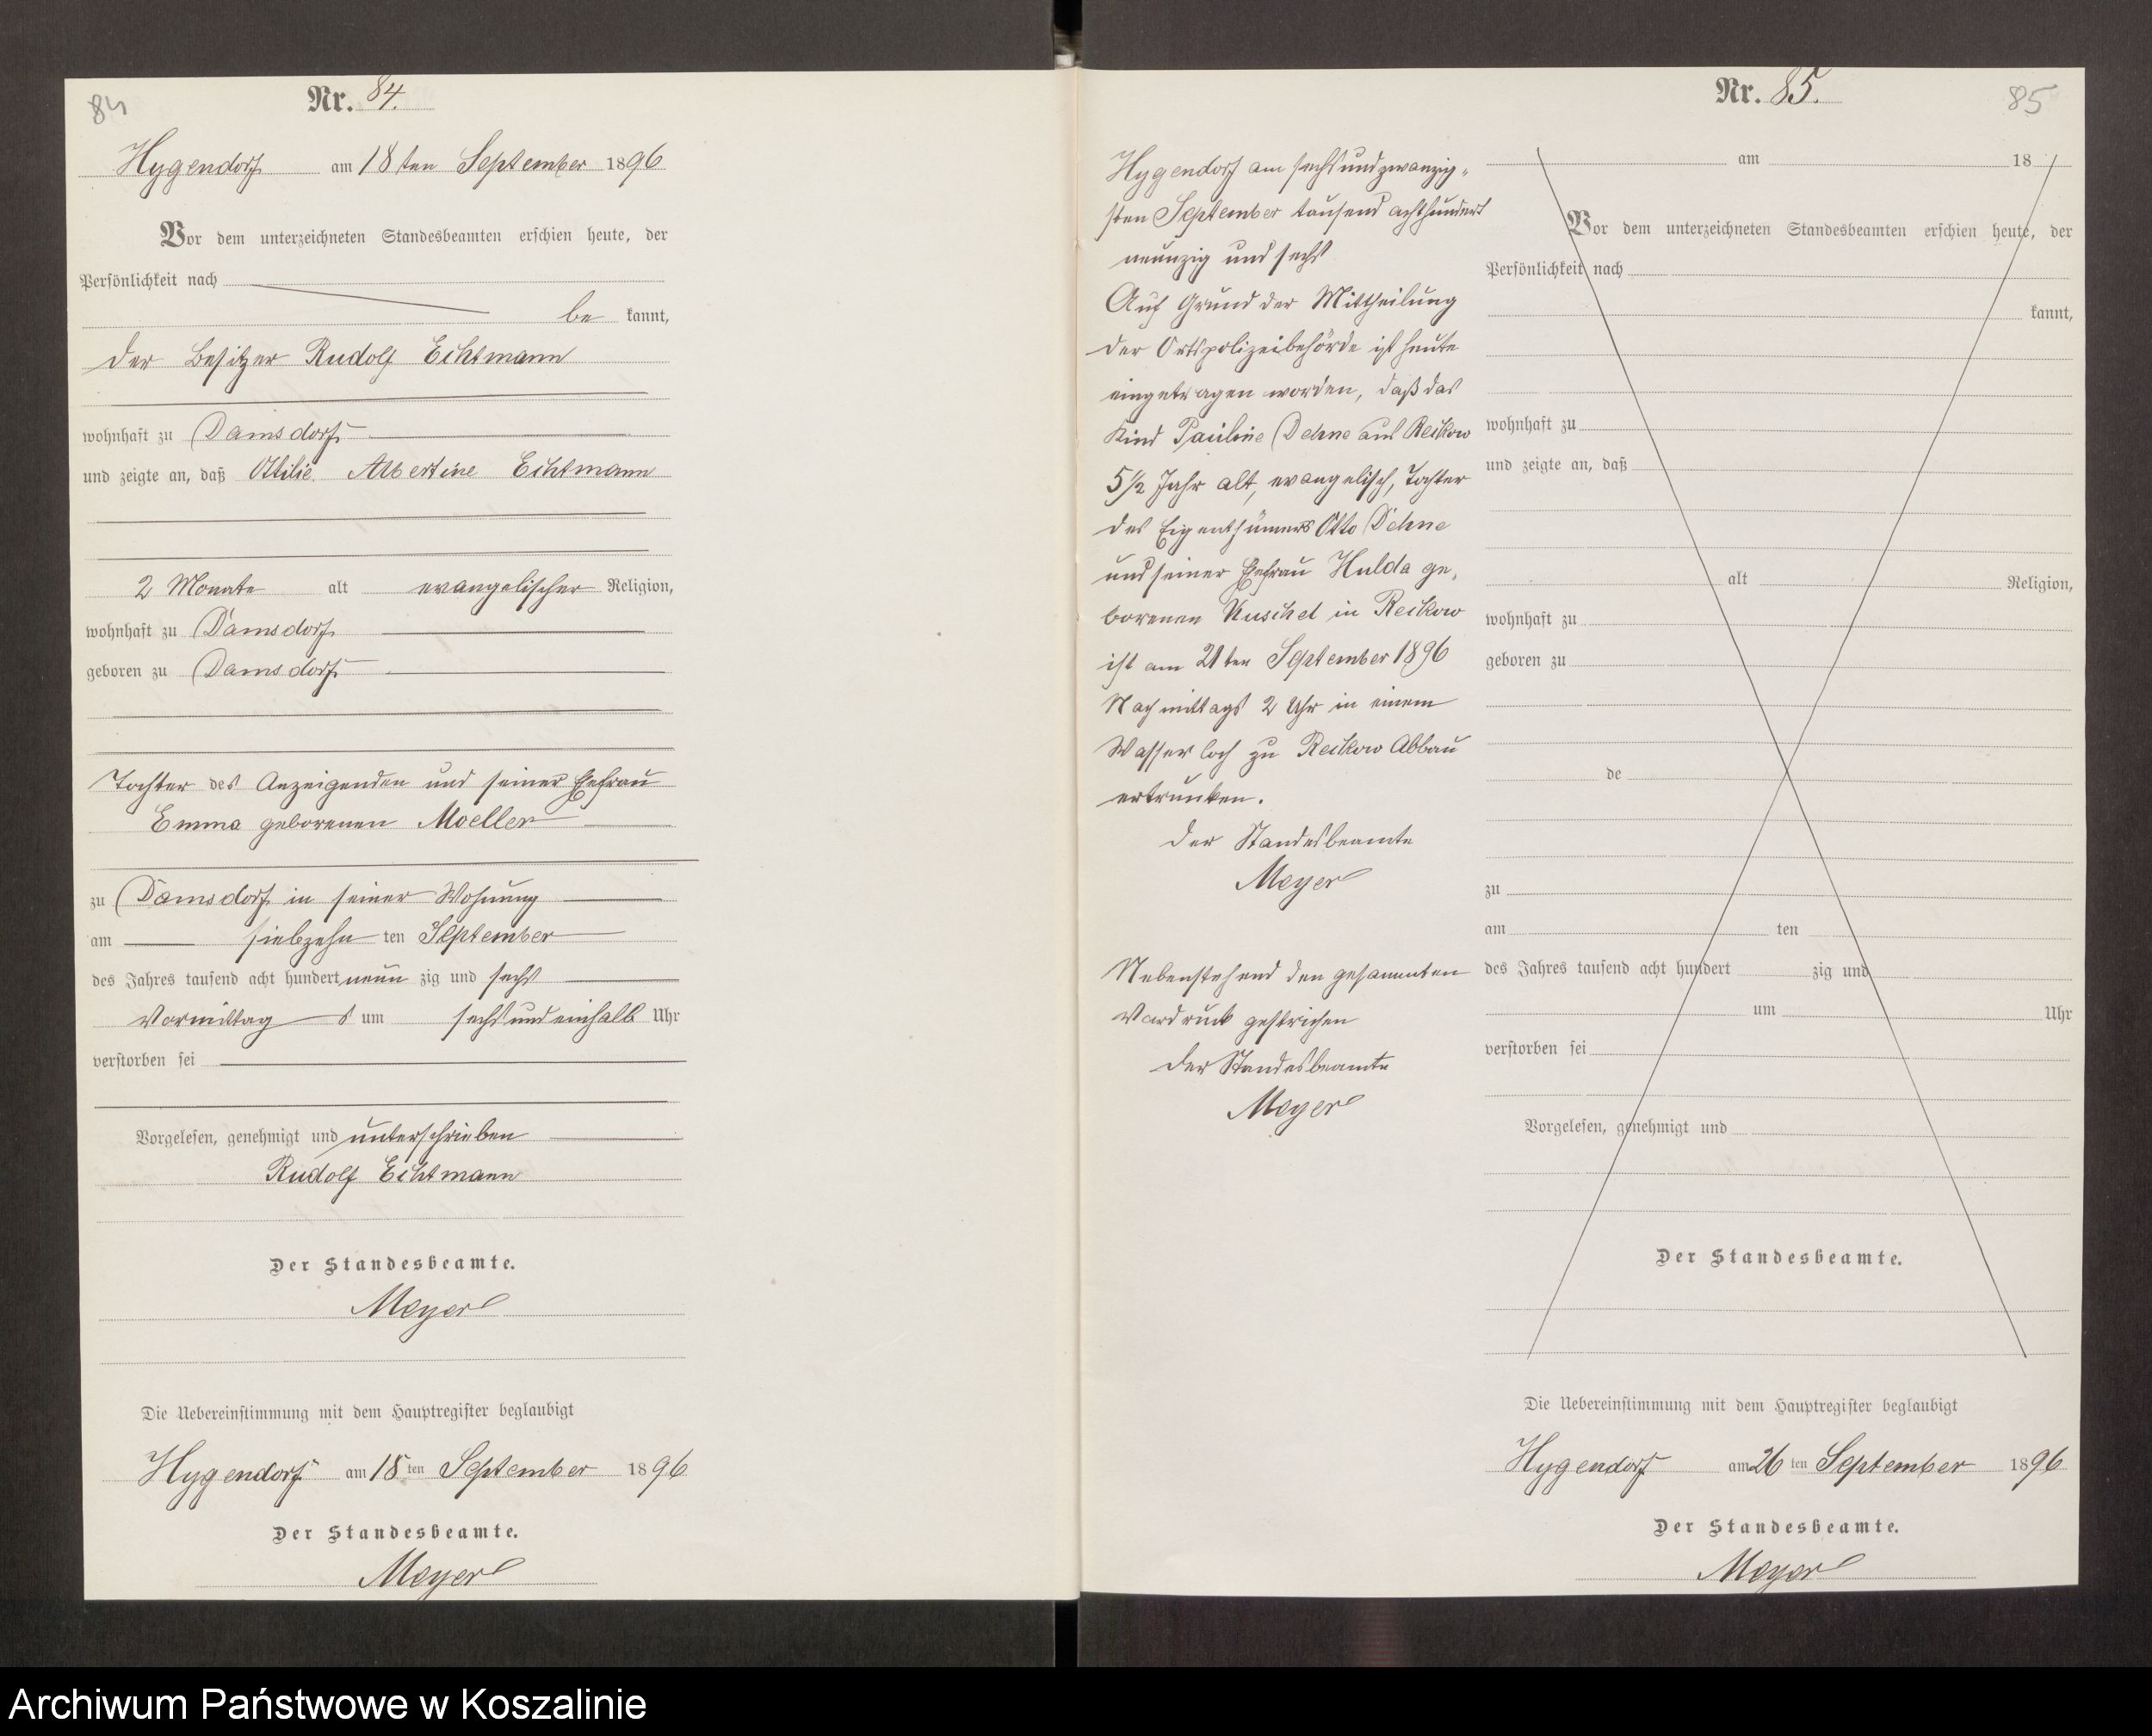 84
Nr. 84.
Hygendorf am 18ten September 1896
Vor dem unterzeichneten Standesbeamten erschien heute, der
Persönlichkeit nach
be kannt,
der Besitzer Rudolf Echtmann
wohnhaft zu Damsdorf
und zeigte an, daß Ottilie Albertine Echtmann
2 Monate alt evangelischer Religion,
wohnhaft zu Damsdorf
geboren zu Damsdorf
Tochter des Anzeigenden und seiner Ehefrau
Emma geborenen Moeller
zu Damsdorf in seiner Wohnung
am siebzehn ten September
des Jahres tausend acht hundert neun zig und sechs
Vormittag s um sechs und einhalb Uhr
verstorben sei
Vorgelesen, genehmigt und unterschrieben
Rudolf Echtmann
Der Standesbeamte.
Meyer
Die Uebereinstimmung mit dem Hauptregister beglaubigt
Hygendorf am 18 ten September 1896
Der Standesbeamte.
Meyer
Nr. 85.
85
Hygendorf am sechs und zwanzig-
sten September tausend acht hundert
neunzig und sechs
Auf Grund der Mittheilung
der Ortspolizeibehörde ist heute
eingetragen worden, daß das
Kind Pauline Dehne aus Reckow
5½ Jahr alt, evangelisch, Tochter
des Eigenthümers Otto Dehne
und seiner Ehefrau Hulda ge-
borenen Kuschel in Reckow
ist am 21ten September 1896
Nachmittags 2 Uhr in einem
Wasserloch zu Reckow Abbau
ertrunken.
Der Standesbeamte
Meyer
Nebenstehend den gesammten
Vordruck gestrichen
Der Standesbeamte
Meyer
am 18
Vor dem unterzeichneten Standesbeamten erschien heute, der
Persönlichkeit nach
kannt,
wohnhaft zu
und zeigte an, daß
alt Religion,
wohnhaft zu
geboren zu
de
zu
am ten
des Jahres tausend acht hundert zig und
um Uhr
verstorben sei
Vorgelesen, genehmigt und
Der Standesbeamte.
Die Uebereinstimmung mit dem Hauptregister beglaubigt
Hygendorf am 26 ten September 1896
Der Standesbeamte.
Meyer
Archiwum Państwowe w Koszalinie